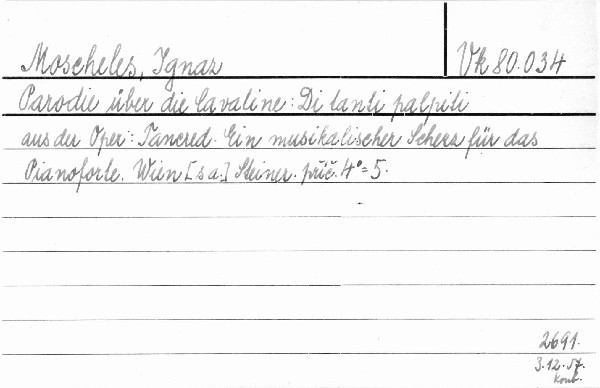 Moscheles, Ignaz Vk 80.034
Parodie über die Cavatine: Di tanti palpiti
aus der Oper: Tancred. Ein musikalischer Scherz für das
Pianoforte. Wien [s a.] Steiner. příč. 4° = 5.
2691.
3.12.57.
Konb.